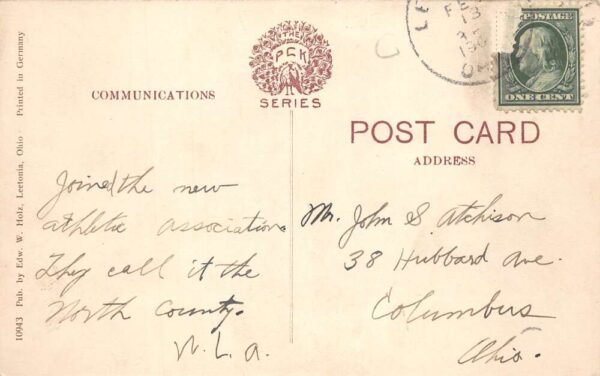 IN THE
PCK
SERIES
COMMUNICATIONS
POST CARD
ADDRESS
10943 Pub. by Edw. W. Holz, Leetonia, Ohio Printed in Germany
FEB
13
POSTAGE
ONE CENT
Joined the new
athletic association
They call it the
North County.
Mr. John S. Atchison
38 Hubbard Ave.
Columbus
Ohio.